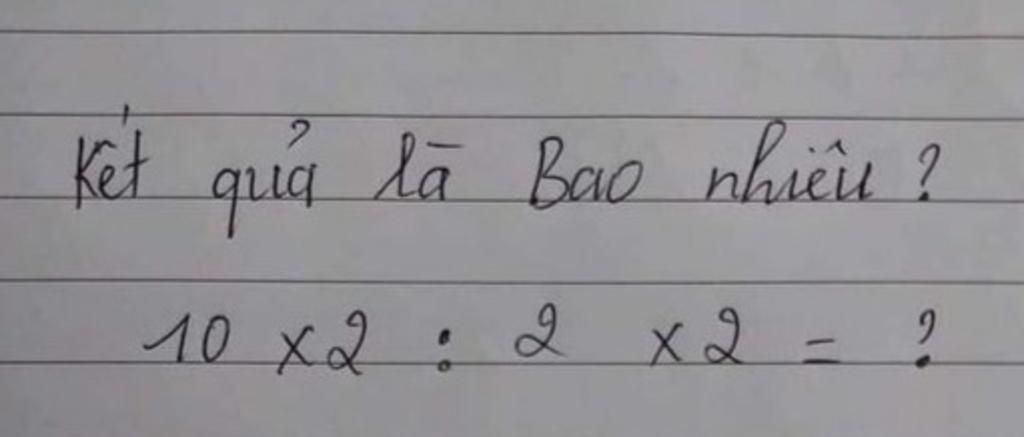 Kết quả là Bao nhiêu ?
10 x 2 : 2 x 2 = ?